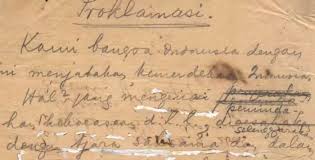 Proklamasi.
Kami bangsa Indonesia dengan
menjatakan kemerdekaan Indonesia
Hal² jang mengenai
peminda
han kekoeasaan d.l.l.
selenggarak
dengan tjara saksama dan dalam